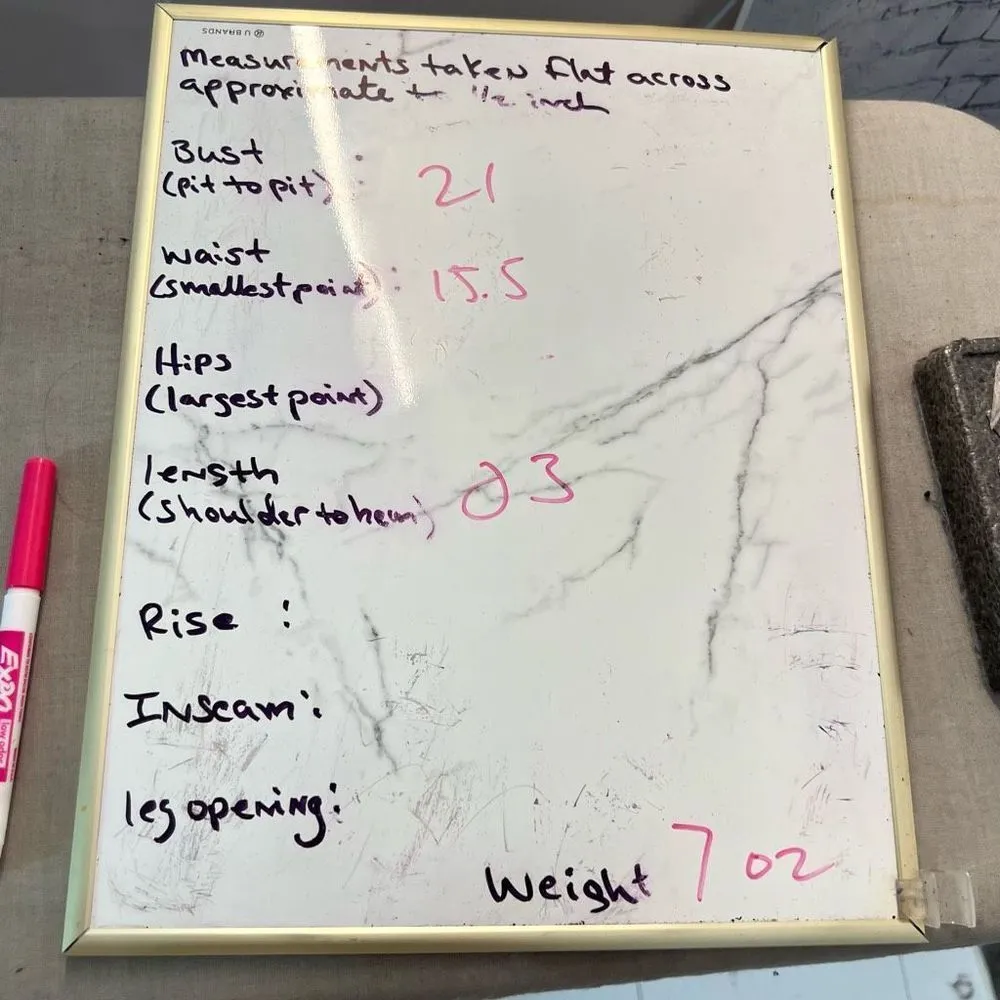 U BRANDS
Measurements taken flat across
approximate to 1/2 inch
Bust
(pit to pit) : 21
waist
(smallest point) : 15.5
Hips
(largest point)
length
(shoulder to hem) 23
Rise :
Inseam :
leg opening :
Weight 7 oz
EXPO
low odor